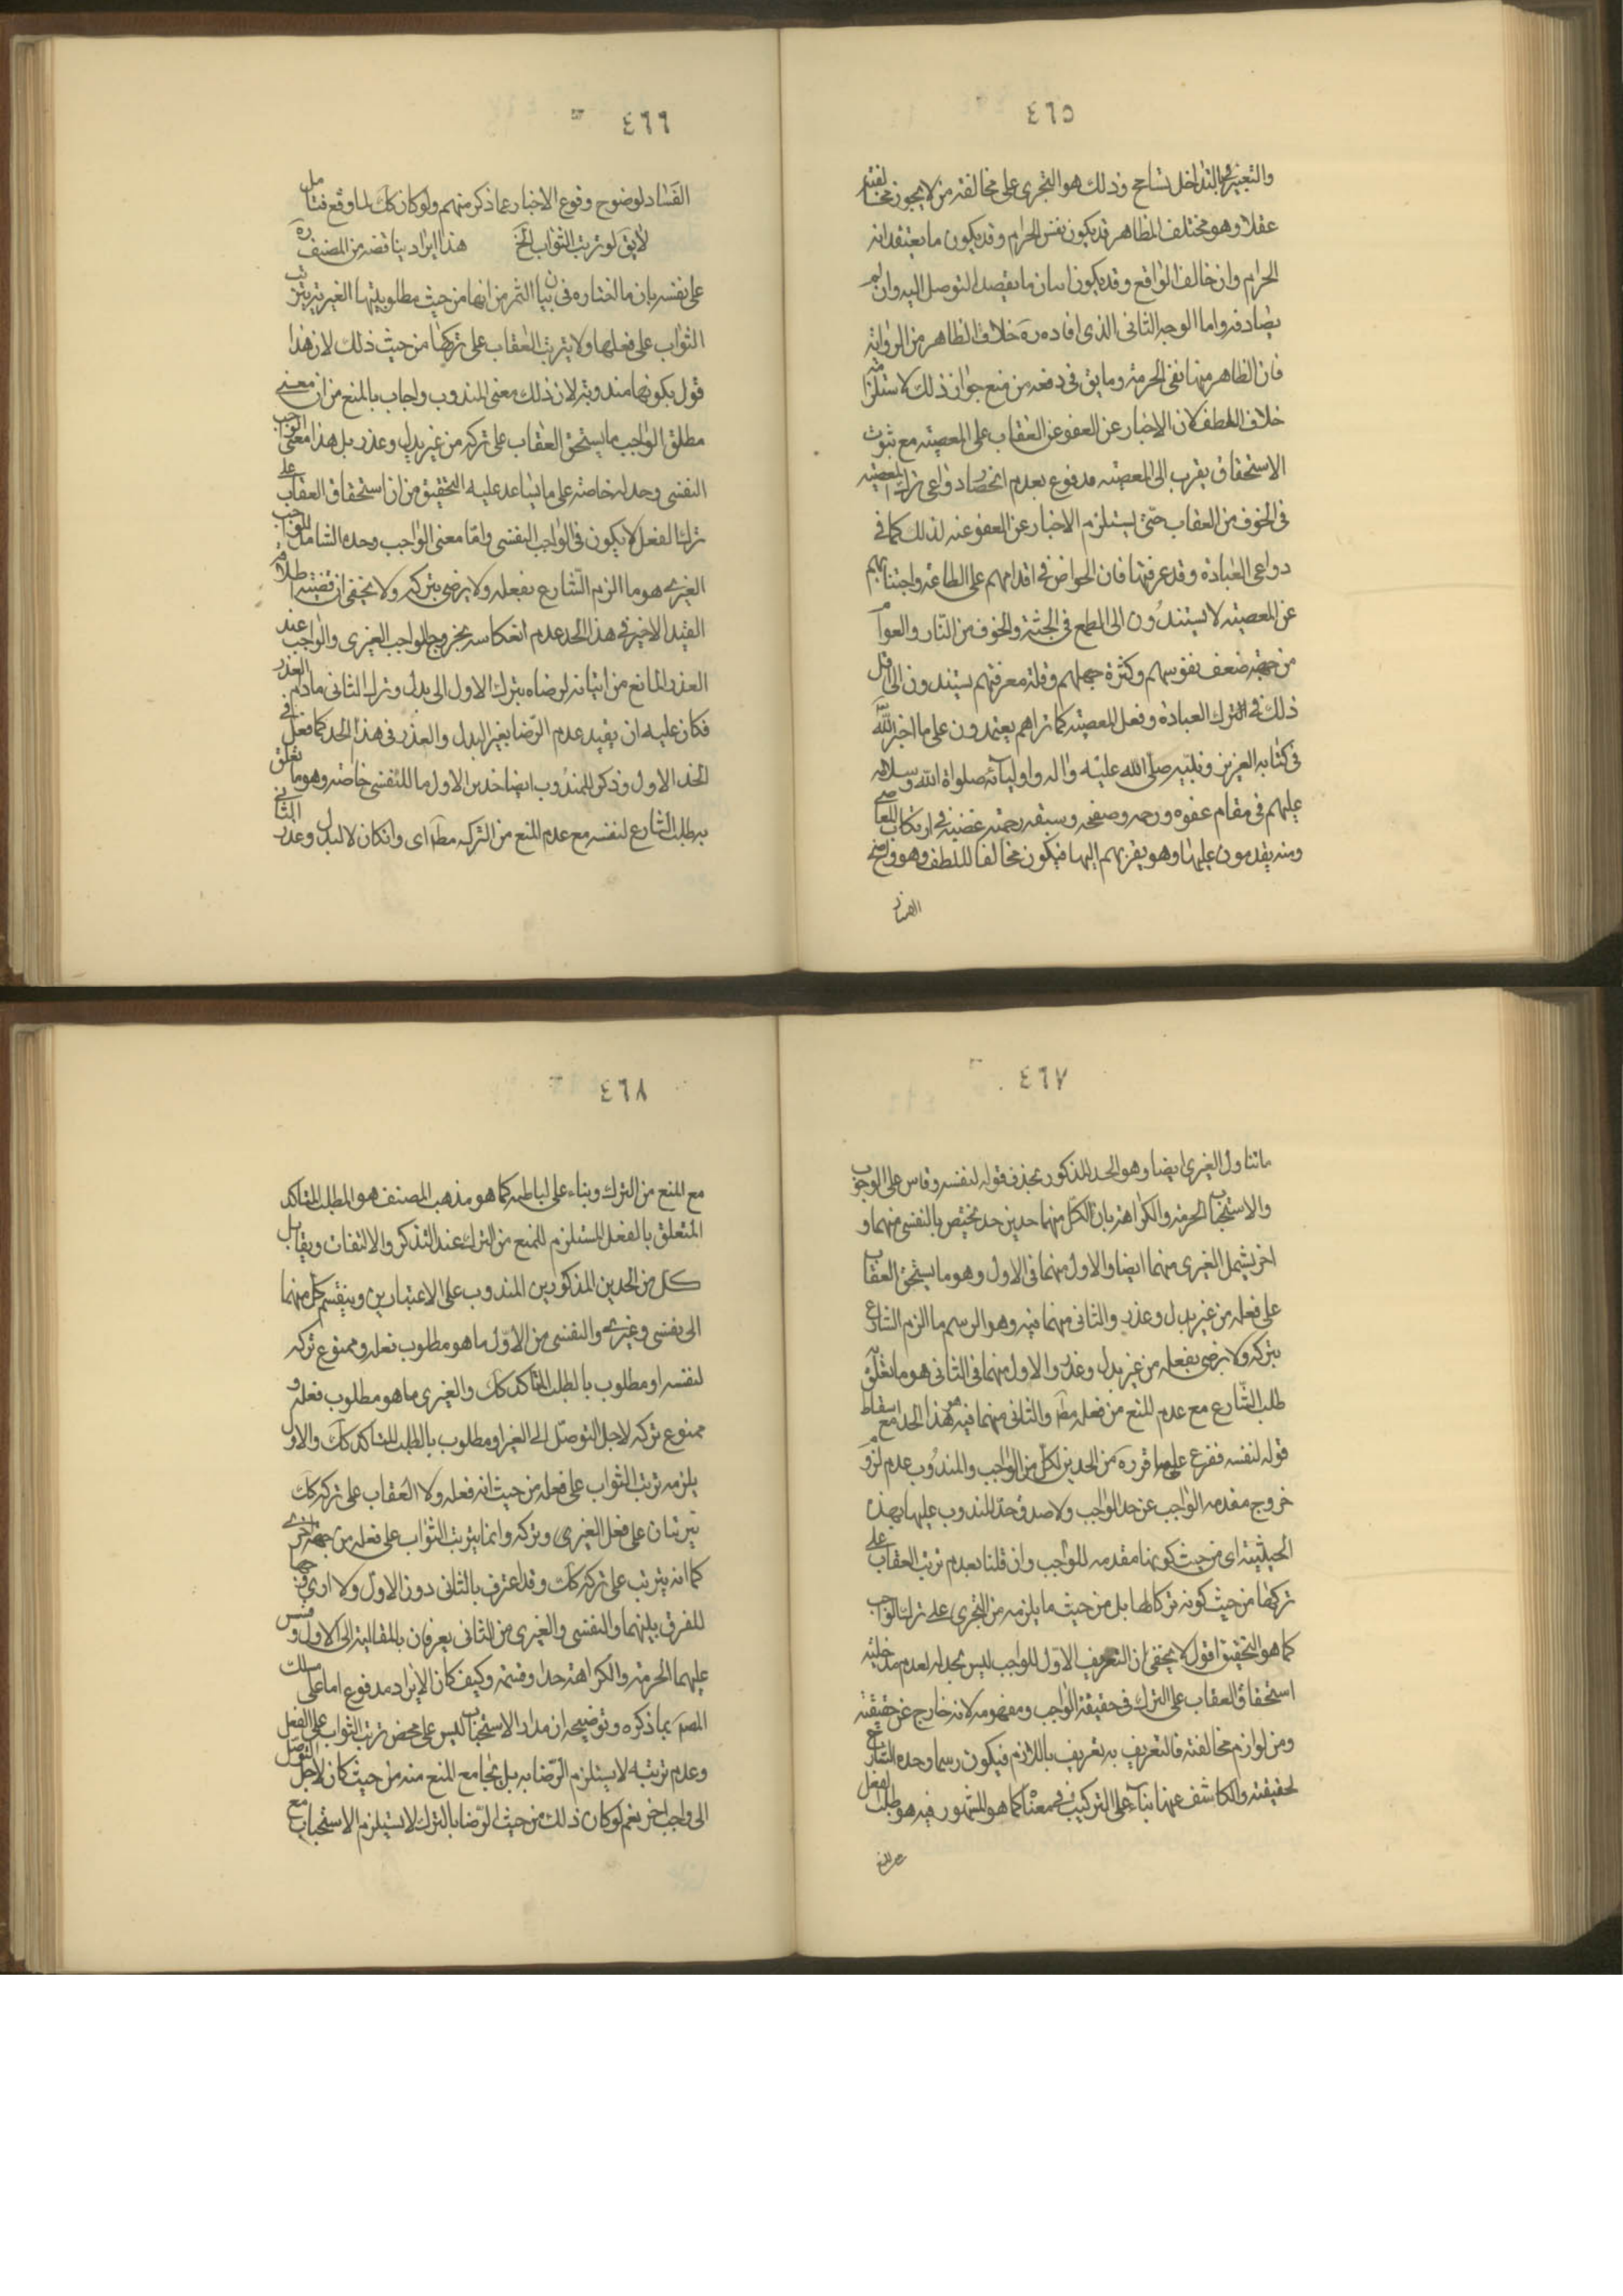 ٤٦٥
والتعبير بالتداخل تسامح وذلك هو التجرى على مخالفة من لا يجوز مخالفته
عقلا وهو مختلف المظاهر قد يكون نفس الحرام وقد يكون ما يعتقد انه
الحرام وان خالف الواقع وقد يكون اتيان ما يقصد التوصل اليه وان لم
يصادفه واما الوجه الثانى الذى افاده ره خلاف الظاهر من الرواية
فان الظاهر منها نفى الحرمة وما يق فى دفعه من منع جواز ذلك لاستلزامه
خلاف اللطف لان الاخبار عن العفو عن العقاب على المعصيته مع ثبوت
الاستحقاق يقرب الى المعصيته مدفوع بعدم انحصار دواعى ترك المعصيته
فى الخوف من العقاب حتى يستلزم الاخبار عن العفو عنه لذلك كما فى
دواعى العبادة وقد عرفتها فان الخواص فى اقدامهم على الطاعة واجتنابهم
عن المعصيته لا يستندون الى الطمع فى الجنة والخوف من النار والعوام
من جهة ضعف نفوسهم وكثرة جهلهم وقلة معرفتهم يستندون الى اقل
ذلك فى الترك العبادة وفعل المعصيته كما تراهم يعتمدون على ما اخبر الله
فى كتابه العزيز ونبيه صلى الله عليه واله واوليائه صلواة الله وسلامه
عليهم فى مقام عفوه ورحمه وصفحه وسبقه رحمته غضبه فى ارتكاب المعاصى
ومنه يقدمون عليها وهو يقربهم اليها فيكون مخالفا للطف وهو واضح
الفساد
٤٦٦
الفساد لوضوح وقوع الاخبار عما ذكر منهم ولو كان كك لما وقع فتامل
لا يق لو ترتب الثواب الخ هذا ايراد يناقضه من المصنف ره
على نفسه بان ما اختاره فى بيان الثمر من انها من حيث مطلوبيتها الغيرية يترتب
الثواب على فعلها ولا يترتب العقاب على تركها من حيث ذلك لان هذا
قول بكونها مندوبة لان ذلك معنى المندوب واجاب بالمنع من ان معنى
مطلق الواجب ما يستحق العقاب على تركه من غير بدل وعذر بل هذا معنى الواجب
النفسى وحد له خاصة على ما يساعد عليه التحقيق من ان استحقاق العقاب على
ترك الفعل لا يكون فى الواجب النفسى واما معنى الواجب وحده الشامل للواجب
الغيرى هو ما الزم الشارع بفعله ولا يرضى بتركه ولا يخفى ان قضيته اطلاق
القيد الاخير فى هذا الحد عدم انعكاسه بخروج الواجب الغيرى والواجب عند
العذر المانع من اتيانه لرضاه بترك الاول الى بدل وترك الثانى مادام العذر
فكان عليه ان يقيد عدم الرضا بغير البدل والعذر فى هذا الحد كما فعل فى
الحد الاول وذكر للمندوب ايضا حدين الاول ما للنفسى خاصة وهو ما تعلق
به طلب الشارع لنفسه مع عدم المنع من الترك مط اى وان كان لا لبدل وعذر الثانى
٤٦٧
ما تناول الغيرى ايضا وهو الحد المذكور بحذف قوله لنفسه وقاس على الوجوب
والاستحباب الحرمة والكراهة بان لكل منهما حدين حد مختص بالنفسى منهما و
اخر يشمل الغيرى منهما ايضا والاول منهما فى الاول وهو ما يستحق العقاب
على فعله من غير بدل وعذر والثانى منهما فيه وهو الرسم ما الزم الشارع
بتركه ولا يرضى بفعله من غير بدل وعذر والاول منهما فى الثانى هو ما تعلق به
طلب الشارع مع عدم المنع من فعله مط والثانى منهما فيه هو هذا الحد مع اسقاط
قوله لنفسه ففرع على ما قرره من الحدين لكل من الواجب والمندوب عدم لزوم
خروج مقدمه الواجب عن حد الواجب ولا صدق حد المندوب عليها بهذه
الحيثيته اى من حيث كونها مقدمه للواجب وان قلنا بعدم ترتب العقاب على
تركها من حيث كونه تركا لها بل من حيث ما يلزمه من التجرى على ترك الواجب
كما هو التحقيق اقول لا يخفى ان التعريف الاول للواجب ليس بحد له لعدم مدخليته
استحقاق العقاب على الترك فى حقيقة الواجب ومفهومه لانه خارج عن حقيقته
ومن لوازم مخالفته فالتعريف به تعريف باللازم فيكون رسما وحده الشارح
لحقيقته والكاشف عنها بناء على التركيب فى معناه كما هو المشهور فيه هو طلب الفعل
مع المنع
٤٦٨
مع المنع من الترك وبناء على لباطه كما هو مذهب المصنف هو الطلب المتاكد
المتعلق بالفعل المستلزم للمنع من الترك عند التذكر والالتفات ويقابل
كل من الحدين المذكورين المندوب على الاعتبارين وينقسم كل منهما
الى نفسى وغيرى والنفسى من الاول ما هو مطلوب فعله وممنوع تركه
لنفسه او مطلوب بالطلب المتاكد كك والغيرى ما هو مطلوب فعله و
ممنوع تركه لاجل التوصل الى الغير او مطلوب بالطلب المتاكد كك والاول
يلزمه ترتب الثواب على فعله من حيث انه فعله ولا العقاب على تركه كك
يترتبان على فعل الغيرى وتركه وانما يترتب الثواب على فعله من جهة اخرى
كما انه يترتب على تركه كك وقد اعترف بالثانى دون الاول ولا ارى وجها
للفرق بينهما والنفسى والغيرى من الثانى يعرفان بالمقايسة الى الاول وقس
عليهما الحرمة والكراهة حدا وقسمة وكيف كان الايراد مدفوع اما على مسلك
المصر بما ذكره وتوضيحه ان مدار الاستحباب ليس على محض ترتب الثواب على الفعل
وعدم ترتبه لا يستلزم الرضا به بل يجامع المنع منه من حيث كان لاجل التوصل
الى واجب اخر نعم لو كان ذلك من حيث الرضا بالترك لاستلزم الاستحباب مع